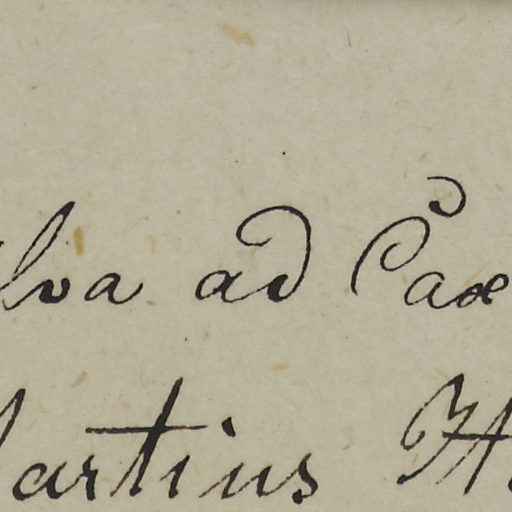 lva ad Cax
artius H